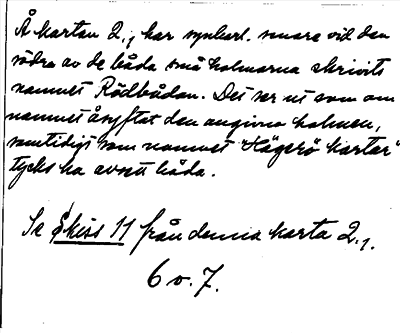 Å kartan 2., har synbarl. senare vid den
södra av de båda små holmarna skrivits
namnet Rödbådan. Det ser ut som om
namnet åsyftat den angivna holmen,
samtidigt som namnet "Hägerö hartar"
tycks ha avsett båda.
Se skiss 11 från denna karta 2.,.
6 o. 7.